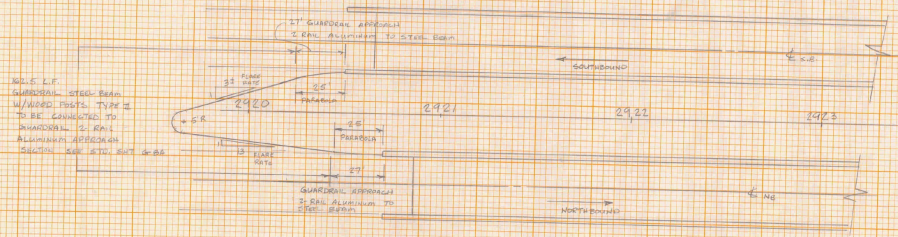 27' GUARDRAIL APPROACH
2 RAIL ALUMINUM TO STEEL BEAM
℄ S.B.
SOUTHBOUND
162.5 L.F.
GUARDRAIL STEEL BEAM
W/WOOD POSTS TYPE
TO BE CONNECTED TO
GUARDRAIL 2-RAIL
ALUMINUM APPROACH
SECTION SEE STD. SHT
FLARE
RATE
25'
PARABOLA
2920
2921
2922
2923
25
PARABOLA
13 FLARE
RATE
27
GUARDRAIL APPROACH
2-RAIL ALUMINUM TO
STEEL BEAM
℄ NB
NORTHBOUND